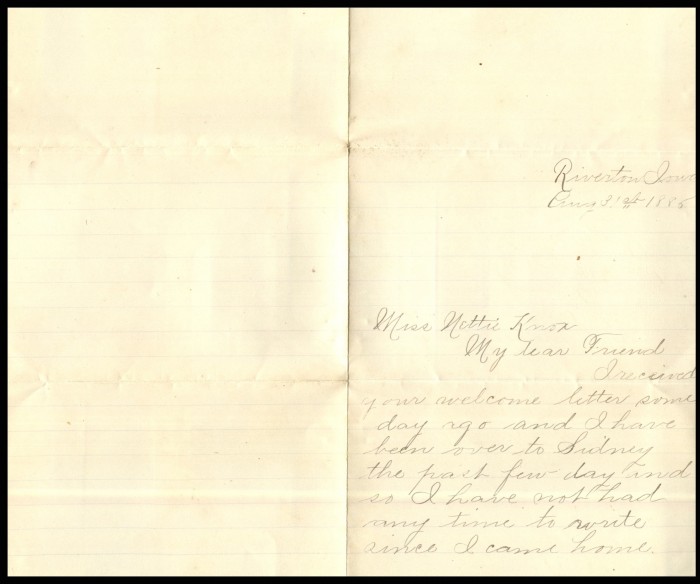 Riverton Iowa
Aug 31st 1885
Miss Nettie Knox
My Dear Friend
I recieved
your welcome letter some
day ago and I have
been over to Sidney
the past few day and
so I have not had
any time to write
since I came home.